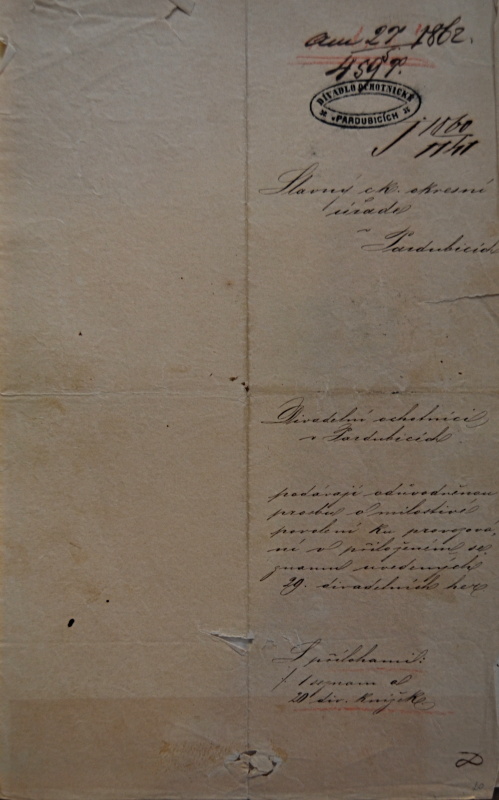 am 27 1862.
DIVADLO OCHOTNICKÉ
PARDUBICÍCH
Slavný ck. okresní
úřade
v Pardubicích
Divadelní ochotníci
v Pardubicích
podávají odůvodněnou
prosbu o milostivé
povolení ku provozová
ní v přiloženém se
znamu uvedených
29. divadelních her
S přílohami:
1 seznam a
20 div. knížek